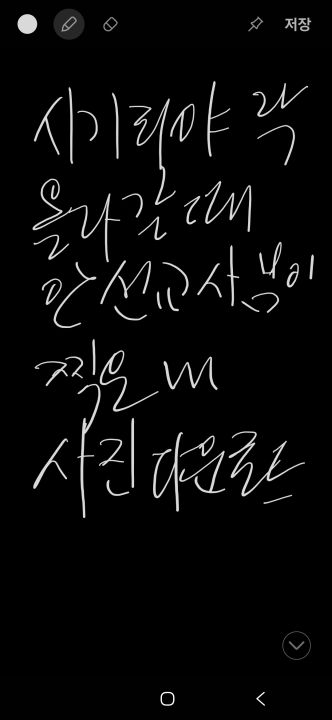 저장
시기리야 락
올라갈 때
안 선교사님이
찍은 내
사진 다운로드